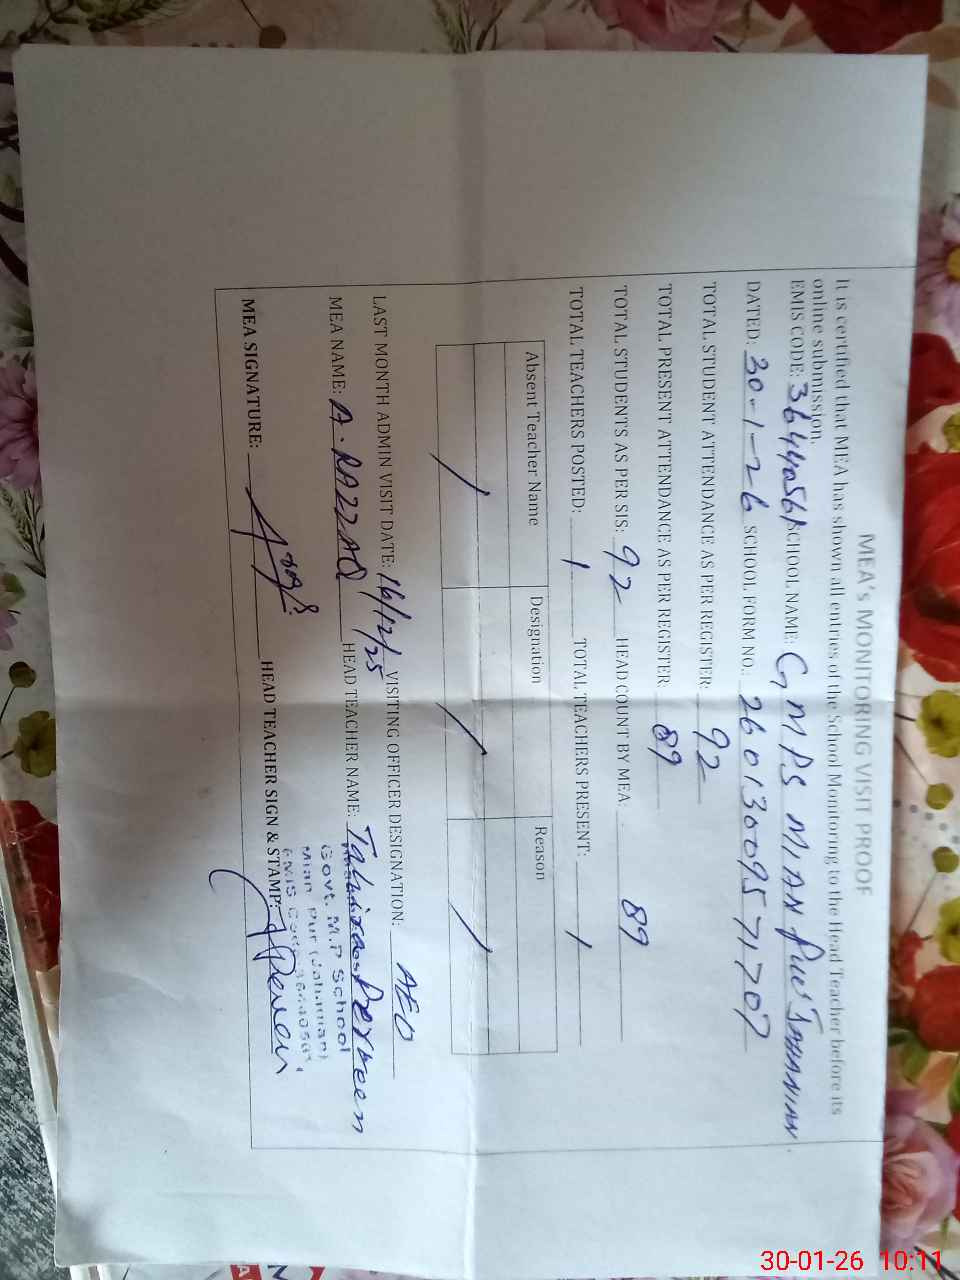 MEA's MONITORING VISIT PROOF
It is certified that MEA has shown all entries of the School Monitoring to the Head Teacher before its
online submission.
EMIS CODE: 36440561 SCHOOL NAME: GMPS MIAN Pur JAHANIAN
DATED: 30-1-26 SCHOOL FORM NO.: 2601300957170?
TOTAL STUDENT ATTENDANCE AS PER REGISTER: 92
TOTAL PRESENT ATTENDANCE AS PER REGISTER: 89
TOTAL STUDENTS AS PER SIS: 92 HEAD COUNT BY MEA: 89
TOTAL TEACHERS POSTED: 1 TOTAL TEACHERS PRESENT: 1
Absent Teacher Name Designation Reason
/ / /
LAST MONTH ADMIN VISIT DATE: 16/12/25 VISITING OFFICER DESIGNATION: AEO
MEA NAME: A. RAZZAQ HEAD TEACHER NAME: Tahira Perveen
Govt. M.P School
Mian Pur (Jahanian)
EMIS Code
MEA SIGNATURE: HEAD TEACHER SIGN & STAMP:
30-01-26 10:11